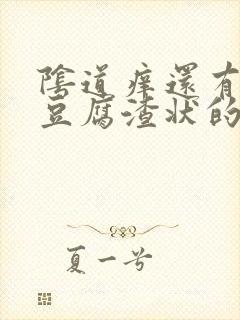 陰道痒還有
豆腐渣狀的
夏一号